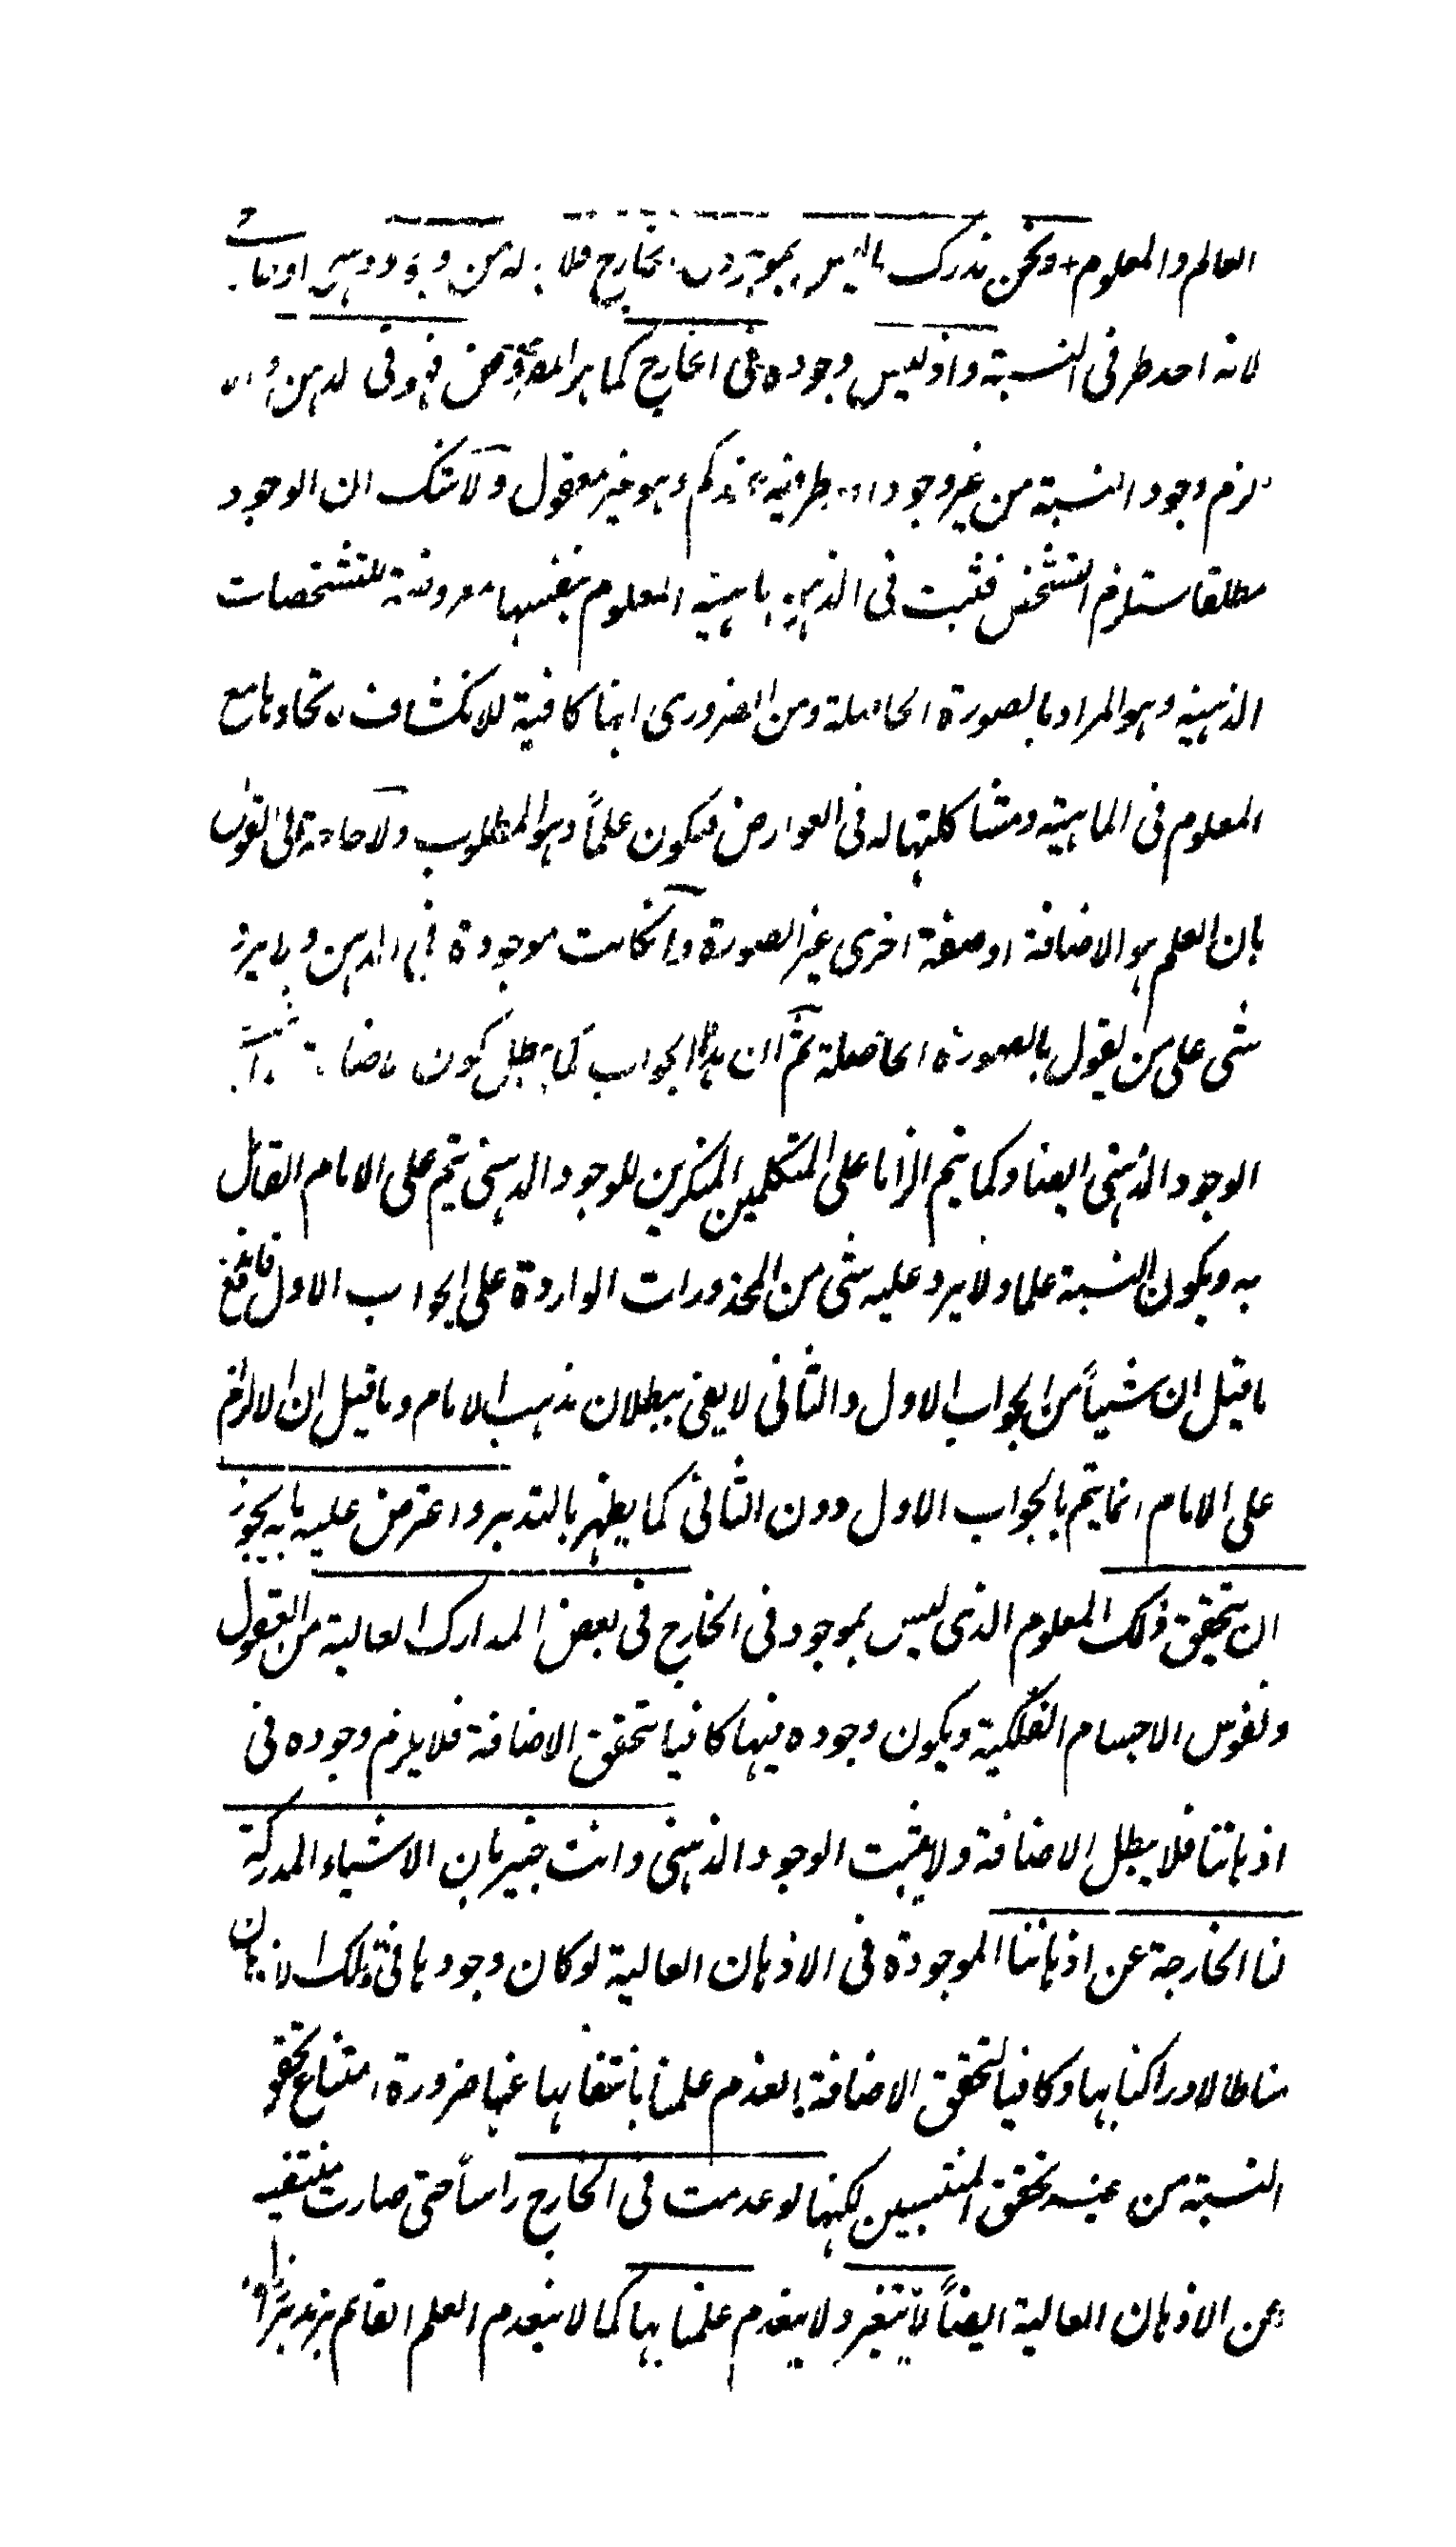 العالم والمعلوم ونحن ندرك ما ليس بموجود فى الخارج فلا بد له من وجود ذهنى
لانه احد طرفى النسبة واذ ليس وجوده فى الخارج كما هو المفروض فهو فى الذهن والا
لزم وجود النسبة من غير وجود احد طرفيه عندكم وهو غير معقول ولا شك ان الوجود
مطلقا يستلزم التشخص فثبت فى الذهن ماهية المعلوم بنفسها معروضة للتشخصات
الذهنية وهو المراد بالصورة الحاصلة ومن الضرورى انها كافية للانكشاف لاتحادها مع
المعلوم فى الماهية ومشاكلتها له فى العوارض فيكون علماً وهو المطلوب ولا حاجة الى القول
بان العلم هو الاضافة او صفة اخرى غير الصورة وان كانت موجودة فى الذهن ولا يرد
شى على من يقول بالصورة الحاصلة ثم ان هذا الجواب كما يبطل كون الاضافة
الوجود الذهنى ايضا وكما يتم الزاما على المتكلمين المنكرين للوجود الذهنى يتم على الامام القائل
به وبكون النسبة علما ولا يرد عليه شى من المحذورات الواردة على الجواب الاول فاندفع
ما قيل ان شيأً من الجواب الاول والثانى لا يفى ببطلان مذهب الامام وما قيل ان الالزام
على الامام انما يتم بالجواب الاول دون الثانى كما يظهر بالتدبر واعترض عليه بانه يجوز
ان يتحقق ذلك المعلوم الذى ليس بموجود فى الخارج فى بعض المدارك العالية من العقول
ونفوس الاجسام الفلكية ويكون وجوده فيها كافيا لتحقق الاضافة فلا يلزم وجوده فى
اذهاننا فلا يبطل الاضافة ولا يثبت الوجود الذهنى وانت خبير بان الاشياء المدركة
لنا الخارجة عن اذهاننا الموجودة فى الاذهان العالية لو كان وجودها فى تلك الاذهان
مناطا لادراكنا بها وكافيا لتحقق الاضافة لانعدم علمنا بانتفائها عنها ضرورة امتناع تحقق
النسبة من غير تحقق المنتسبين لكنها لو عدمت فى الخارج راساً حتى صارت منتفية
عن الاذهان العالية ايضاً لا يتغير ولا ينعدم علمنا بها كما لا ينعدم العلم القائم بزيد